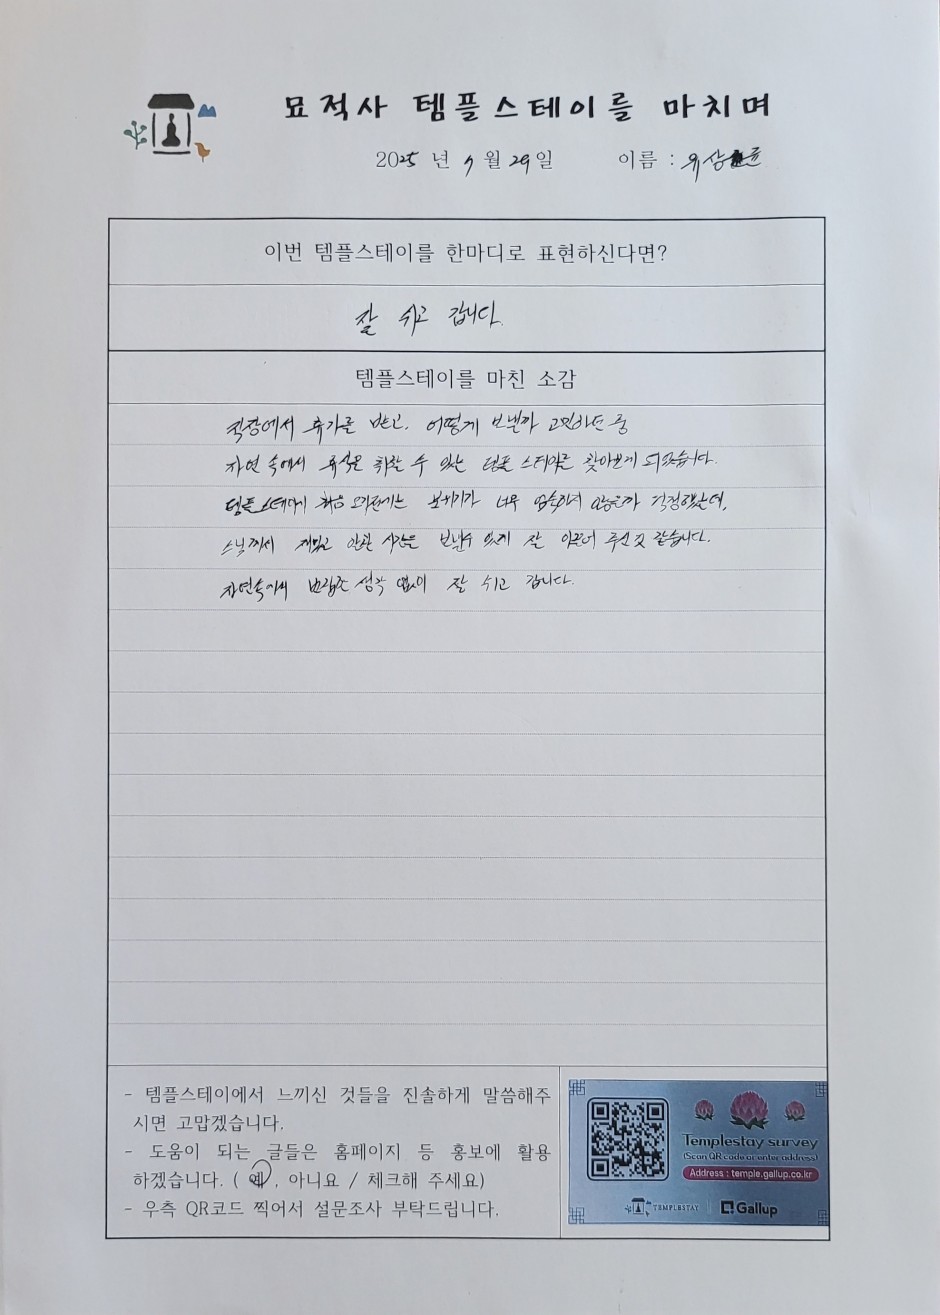 묘적사 템플스테이를 마치며
2025 년 9 월 29일 이름 : 유상
이번 템플스테이를 한마디로 표현하신다면?
잘 쉬고 갑니다.
템플스테이를 마친 소감
직장에서 휴가를 받고, 어떻게 보낼까 고민하던 중
자연 속에서 휴식을 취할 수 있는 템플 스테이를 찾아보게 되었습니다.
템플스테이에 처음 오기전에는 분위기가 너무 엄숙하지 않을까 걱정했는데,
스님께서 재밌고 알찬 시간을 보낼수 있게 잘 이끌어 주신것 같습니다.
자연속에서 번잡한 생각 없이 잘 쉬고 갑니다.
- 템플스테이에서 느끼신 것들을 진솔하게 말씀해주
시면 고맙겠습니다.
- 도움이 되는 글들은 홈페이지 등 홍보에 활용
하겠습니다. ( 예 , 아니요 / 체크해 주세요)
- 우측 QR코드 찍어서 설문조사 부탁드립니다.
Templestay survey
(Scan QR code or enter address)
Address : temple.gallup.co.kr
TEMPLESTAY | Gallup